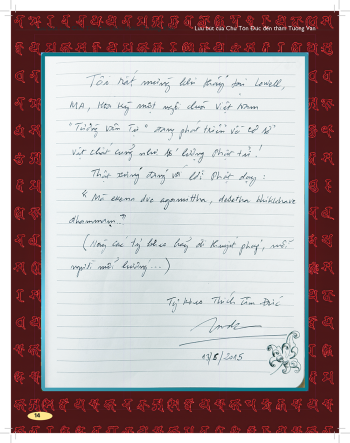 Lưu bút của Chư Tôn Đức đến thăm Tường Vân
Tôi rất mừng khi thấy tại Lowell,
MA, Hoa Kỳ một ngôi chùa Việt Nam
"Tường Vân Tự" đang phát triển về cơ sở
vật chất cũng như số lượng Phật tử!
Thật xứng đáng với lời Phật dạy:
"Mā ekena dve agamittha, desetha bhikkhave
dhammaṃ."
(Này các tỳ kheo hãy đi thuyết pháp, mỗi
người mỗi hướng...)
Tỳ kheo Thích Tâm Đức
17/8/2015
14